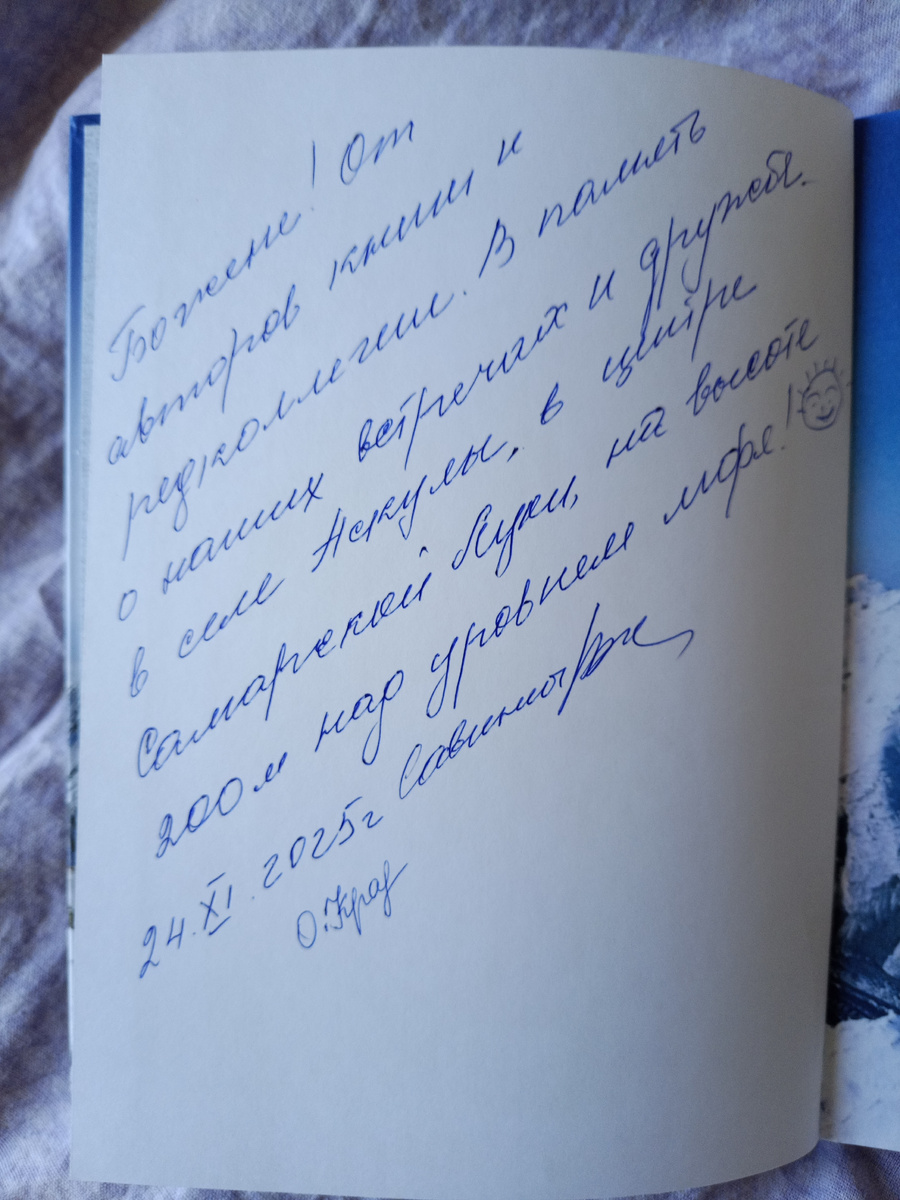 Божене! От
авторов книги и
редколлегии. В память
о наших встречах и дружбе.
в селе Аскулы, в центре
Самарской Луки, на высоте
200 м над уровнем моря!
24.XI.2025г